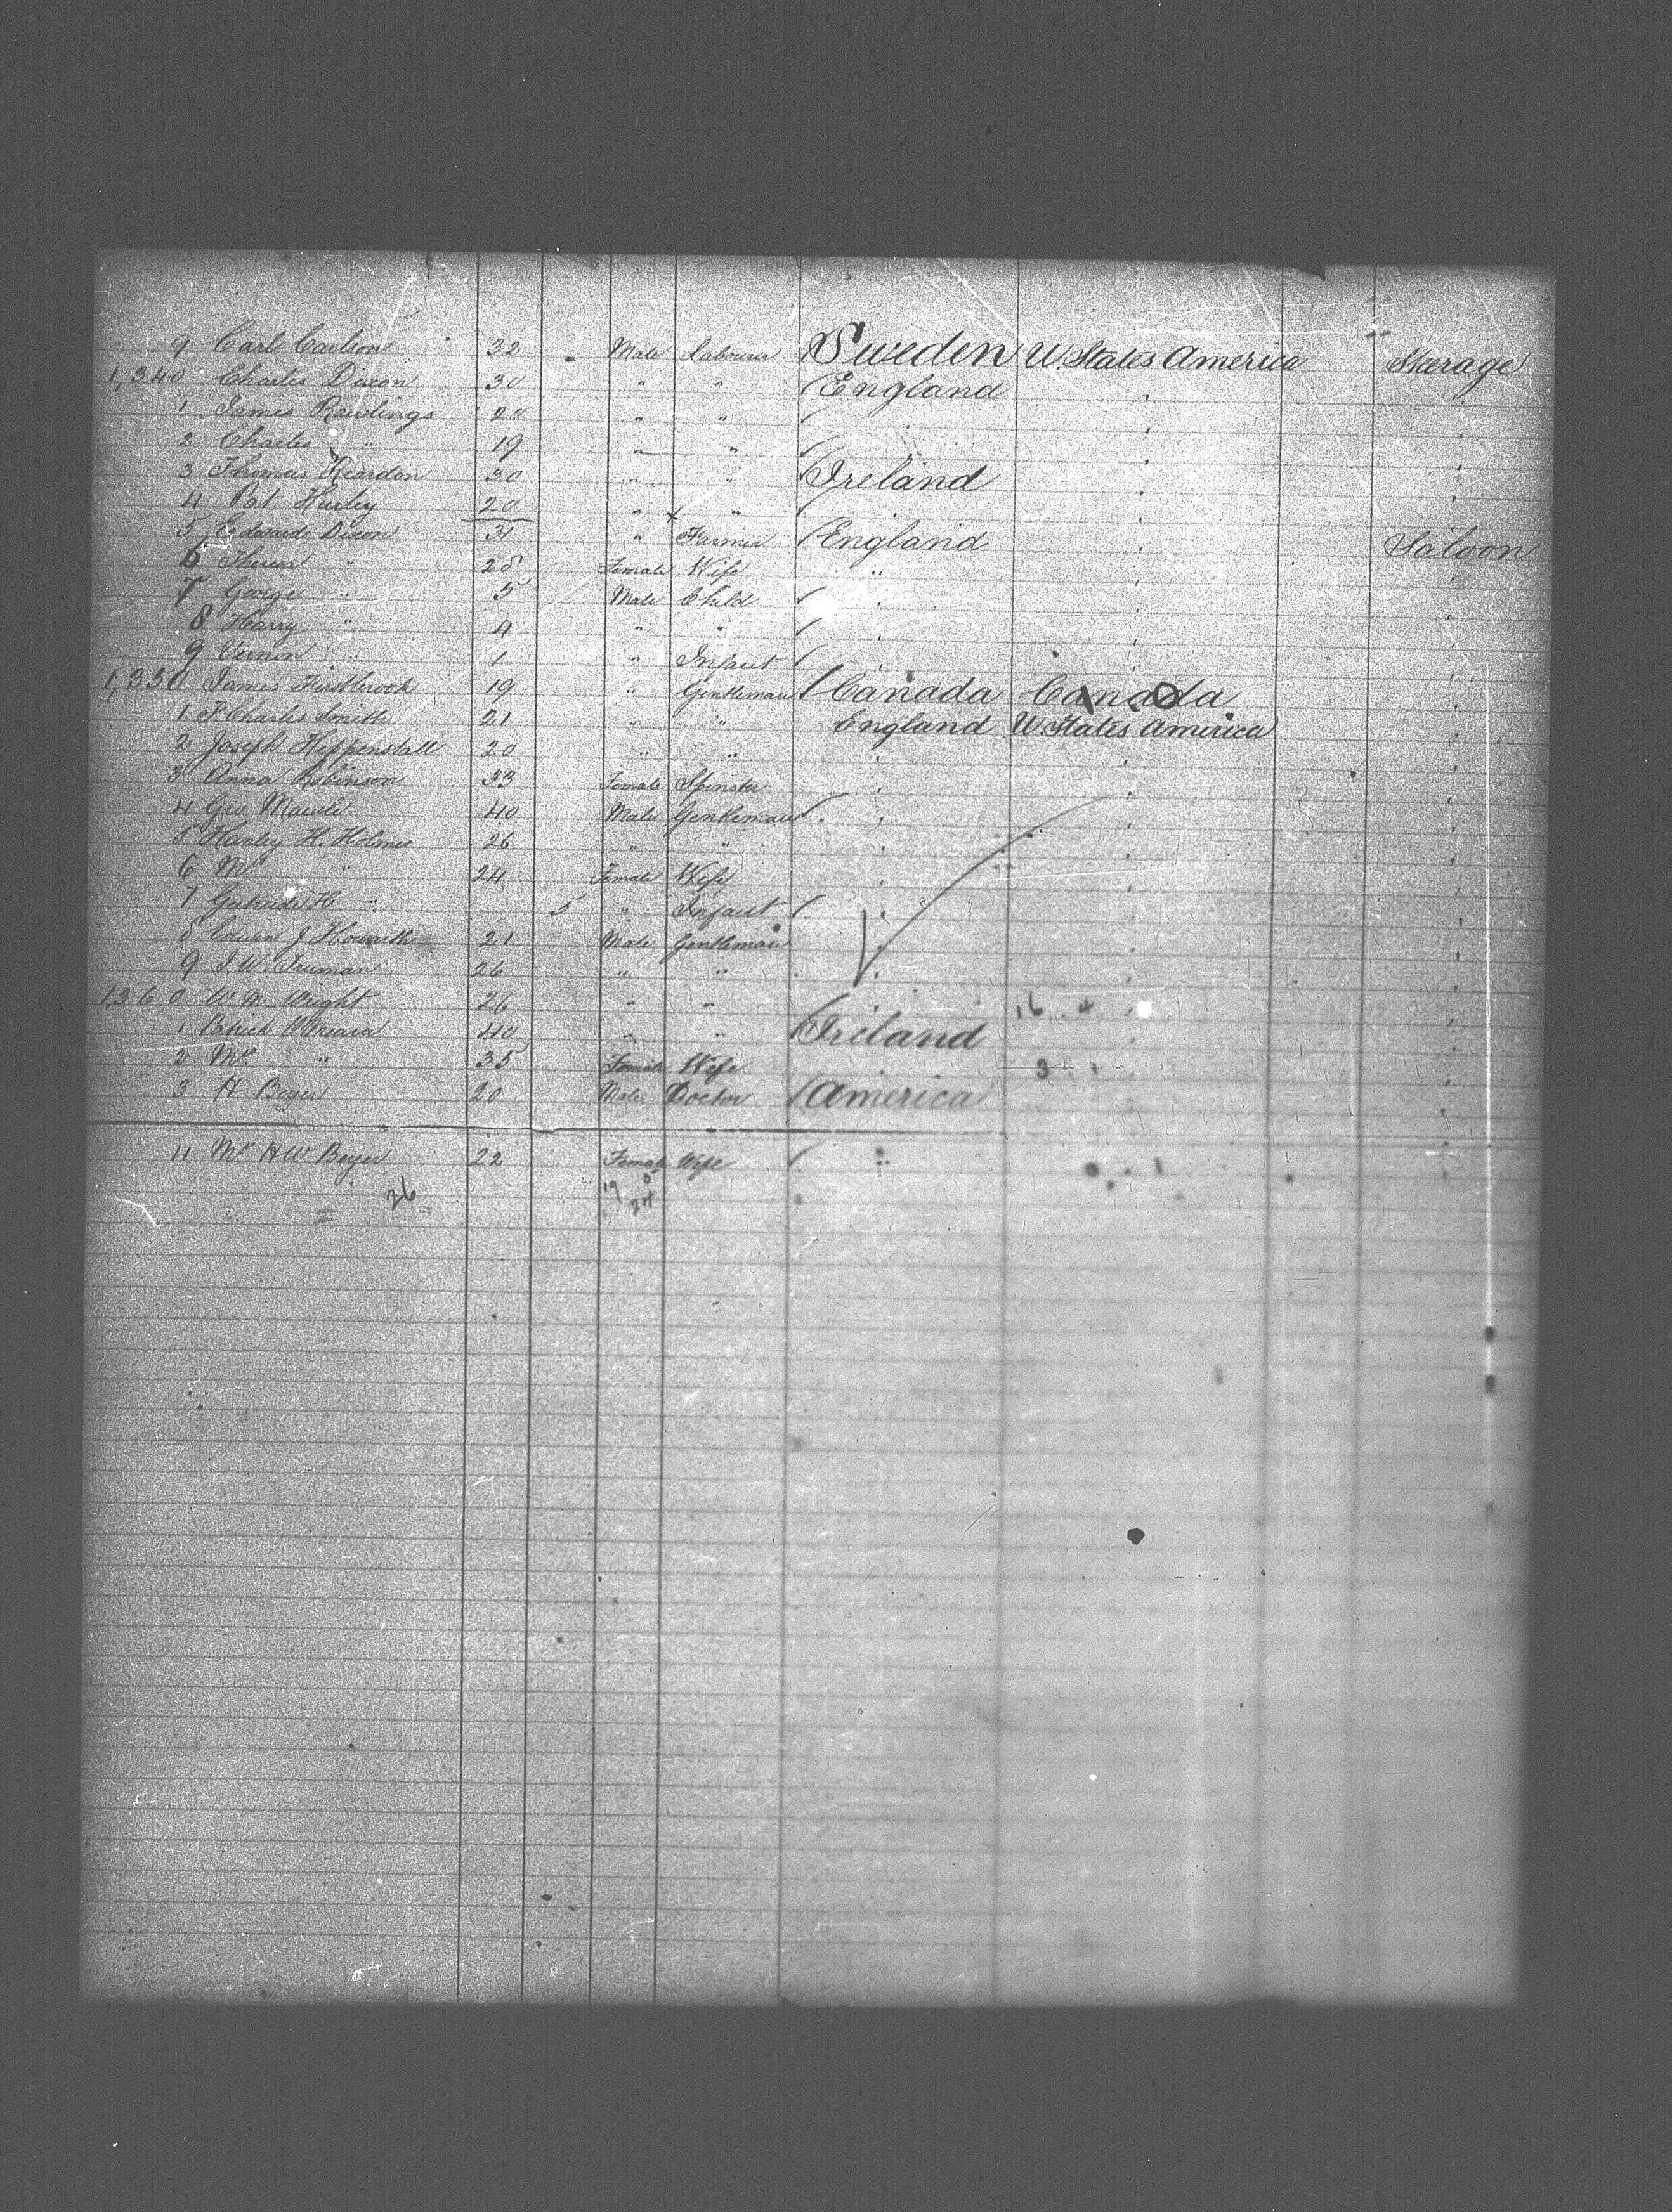 9 Carl Carlson 32 Male Labourer Sweden U. States America Steerage
1,340 Charles Dixon 30 " " England " "
1 James Rawlings 20 " " " " "
2 Charles " 19 " " " " "
3 Thomas Reardon 30 " " Ireland " "
4 Pat Hurley 20 " " " " "
5 Edward Dixon 31 " Farmer England " Saloon
6 Theresa " 28 Female Wife " " "
7 George " 5 Male Child " " "
8 Harry " 4 " " " " "
9 Vernon " 1 " Infant " " "
1,350 James Firstbrook 19 " Gentleman Canada Canada "
1 F. Charles Smith 21 " " England U. States America "
2 Joseph Heppenstall 20 " " " " "
3 Anna Robinson 33 Female Spinster " " "
4 Geo 40 Male Gentleman " " "
5 Hanley H. Holmes 26 " " " " "
6 Mrs " 24 Female Wife " " "
7 Gertrude H " 5 " Infant " " "
8 Edwin J Howarth 21 Male Gentleman " " "
9 J. W. Truman 26 " " " " "
1360 W. M. Wight 26 " " 16 4 " "
1 Patrick O'Meara 40 " " Ireland "
2 Mrs " 35 Female Wife 3 1 "
3 H Beyer 20 Male Doctor America "
4 Mrs H W Beyer 22 Female Wife " 1
26 19 24